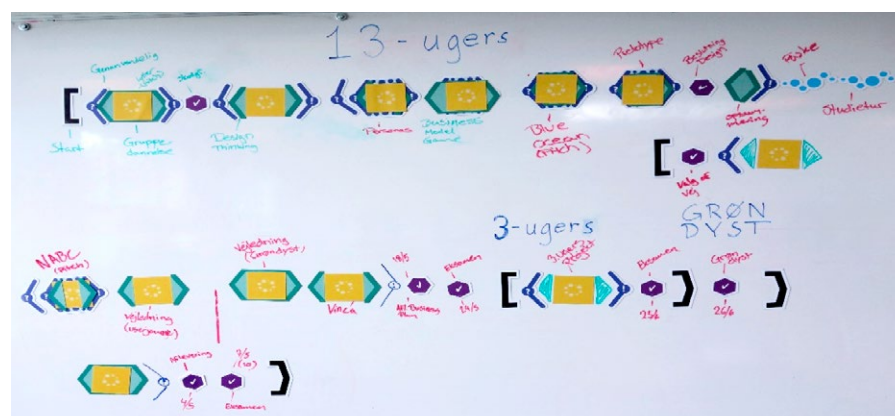 13-ugers
Genanvendelig
Start
Gruppe-
dannelse
Design
Thinking
Personas
Business
Model
Game
Blue
Ocean
(Pitch)
Prototype
Beslutning
Design
optimi-
mering
Påske
Studietur
Valg af
vej
GRØN
DYST
3-ugers
NABC
(pitch)
Vejledning
Vejledning
(Grøndyst)
19/5
Business
Plan
Eksamen
24/5
3 ugers
Projekt
Eksamen
23/6
Grøn
dyst
26/6
Aflevering
Eksamen